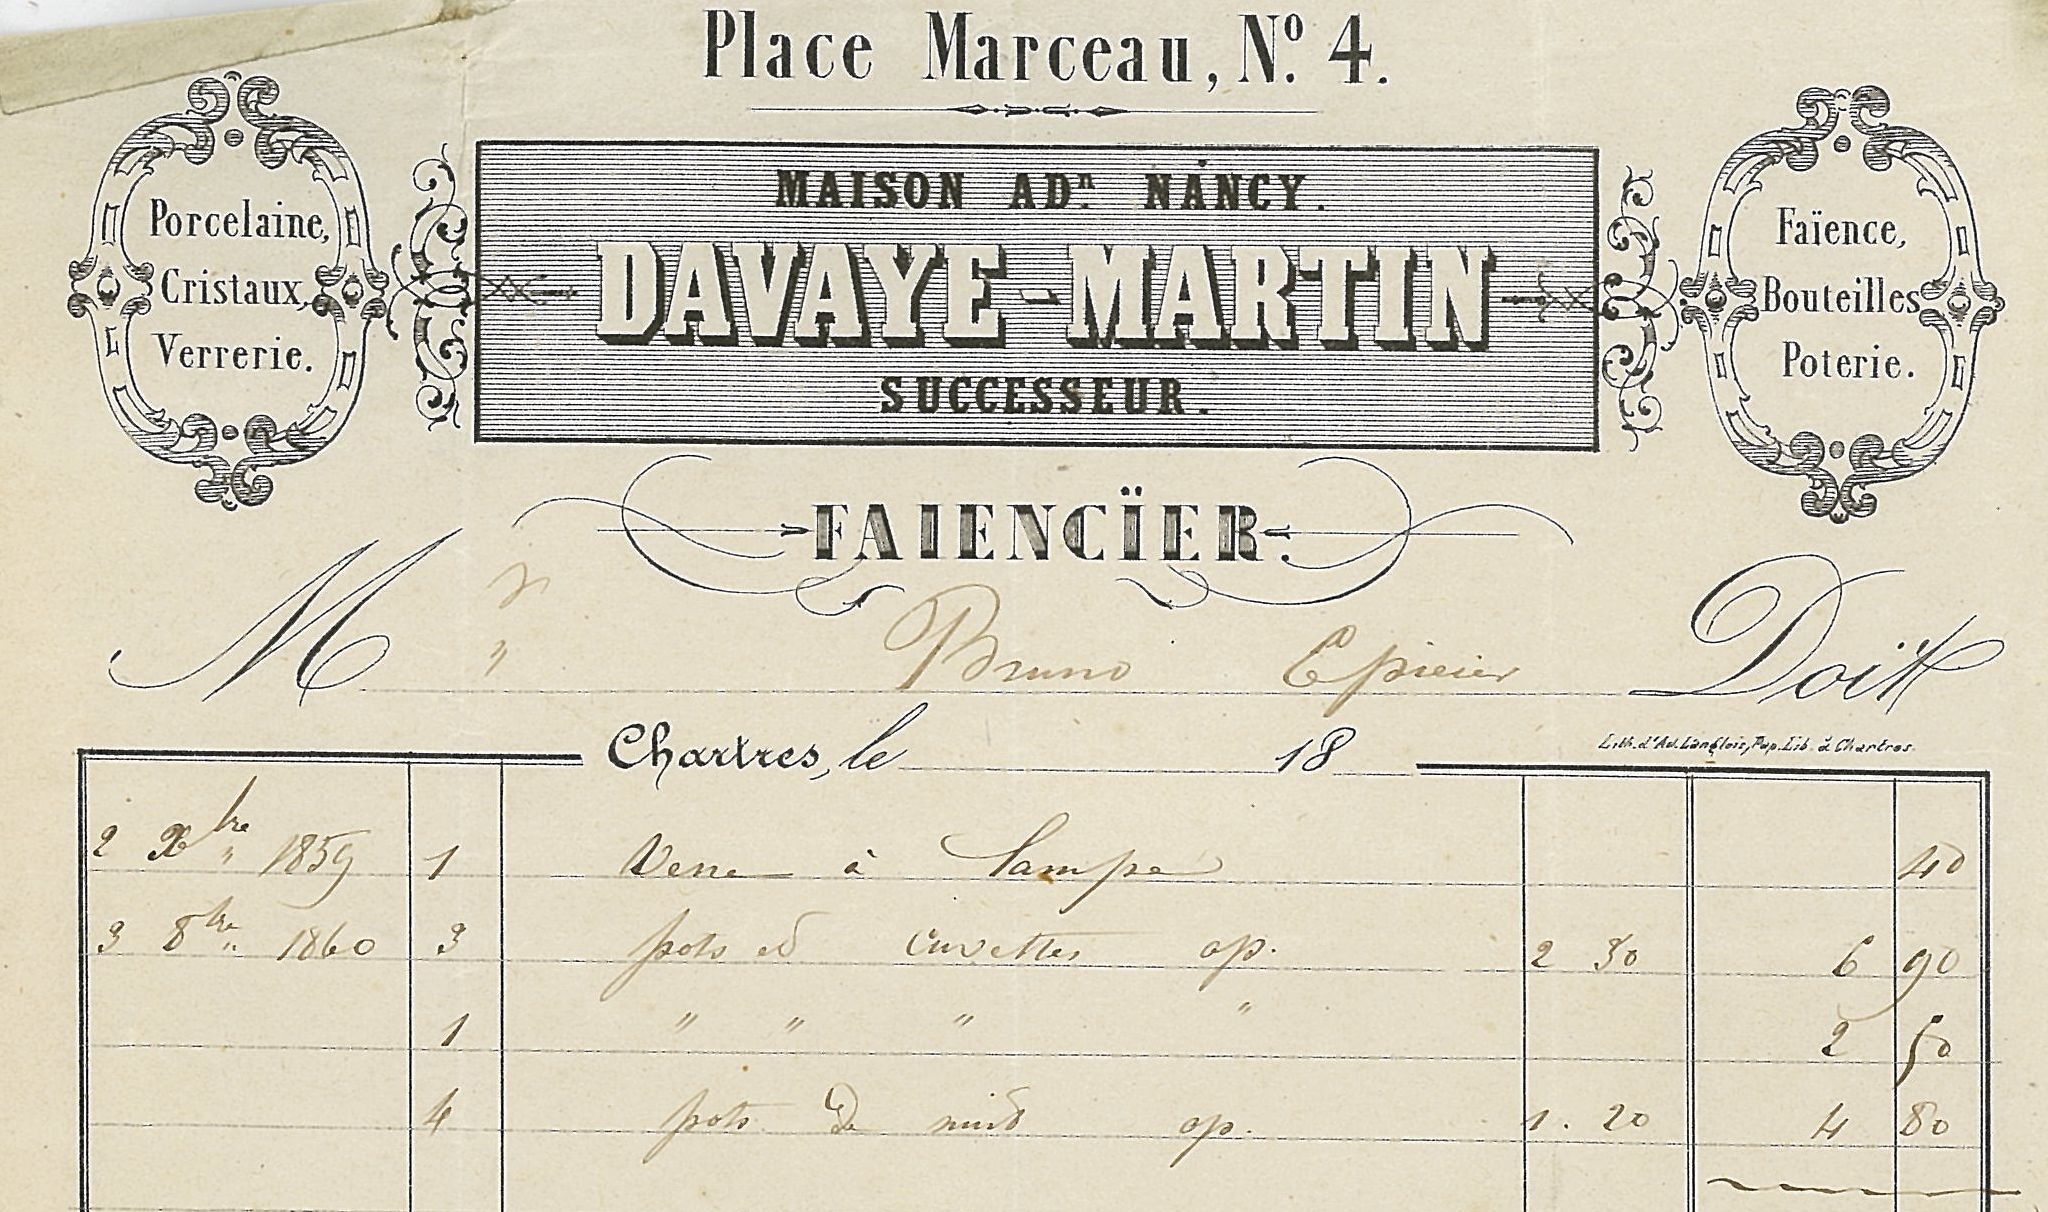 Place Marceau, Nº. 4.
Porcelaine,
Cristaux,
Verrerie.
MAISON ADⁿ. NANCY.
DAVAYE-MARTIN
SUCCESSEUR.
Faïence,
Bouteilles
Poterie.
FAIENCÏER.
M r " Bruno Epicier Doit
Chartres, le 18
Lith. d'Ad. Langlois, Pap. Lib. à Chartres.
2 Xbre " 1859 1 Verre à Lampe 40
3 8bre " 1860 3 pots et cuvettes op. 2 30 6 90
1 " " " " 2 50
4 pots de nuit op. 1. 20 4 80